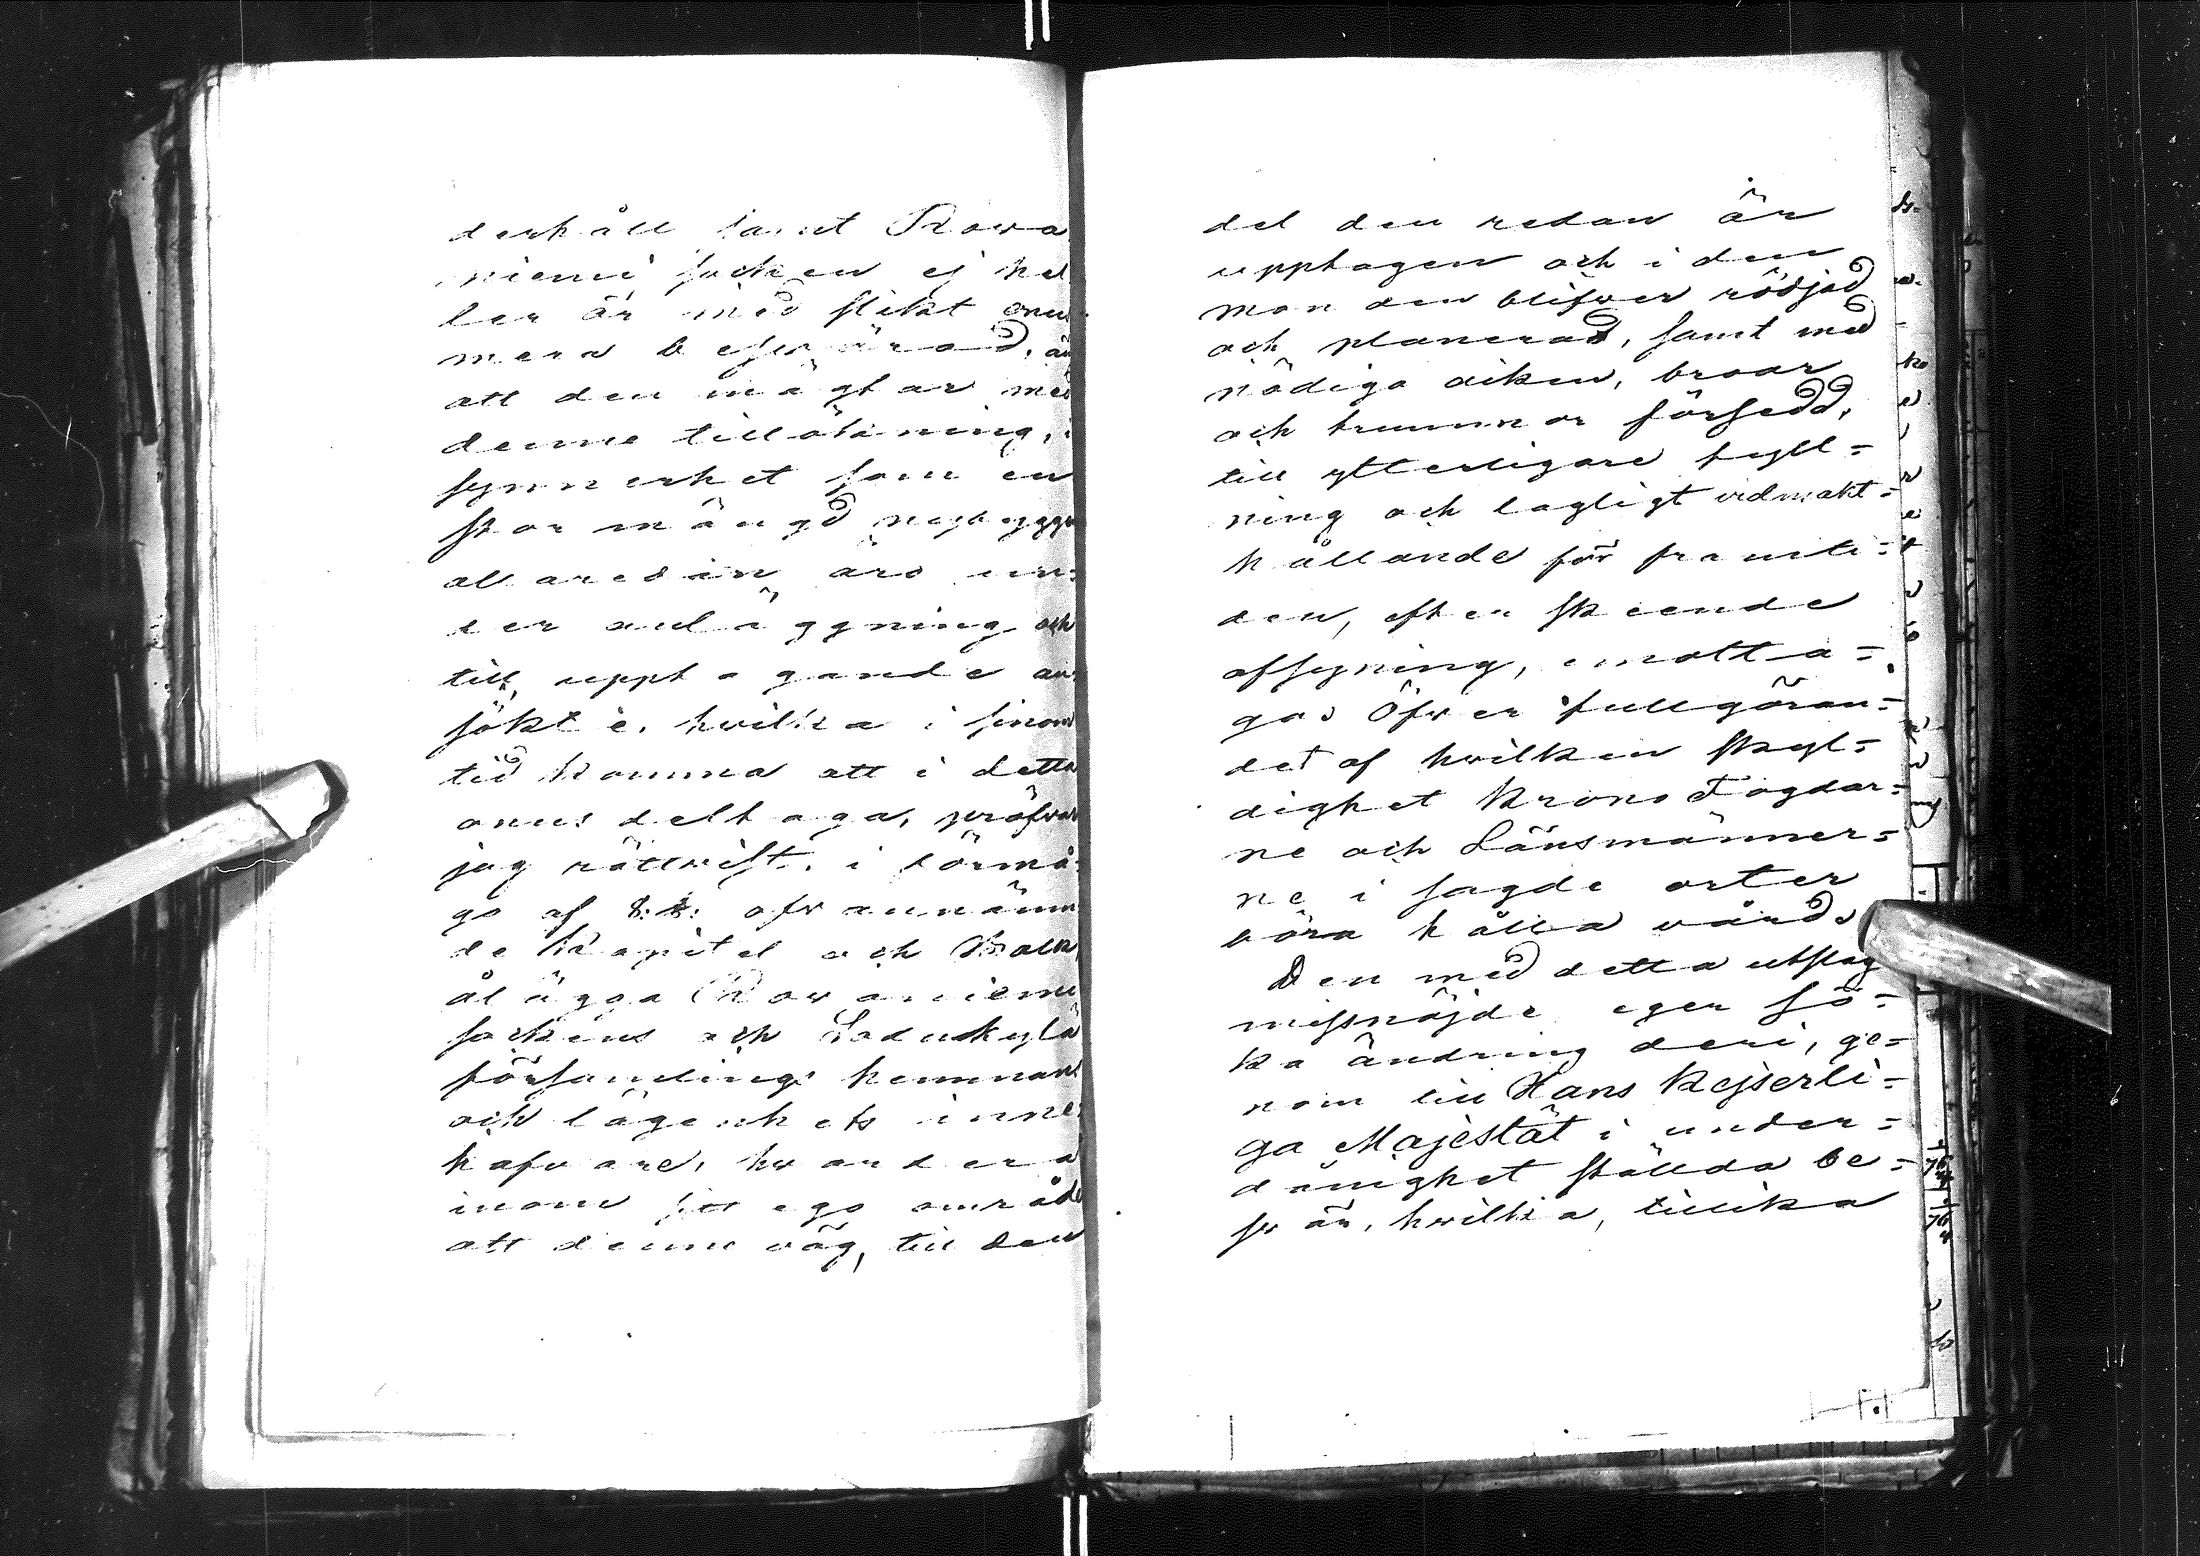 derhåll samt Rova
niemi socken ej hel
ler är med slikt onus
mera besvärad, än
att den mägtar med
denne tillökning, i
synnerhet som en
stor mängd nybyggen
allaredan äro un-
der anläggning och
till upptagande an-
sökte, hwilka i sinom
tid komma att i detta
onus deltaga, pröfwar
jag rättwist, i förmå-
go af ofwannämn
de Kapitel och Balk,
ålägga Rowaniemi
sockens och Sodankylä
församlings hemmans
och lägenhets inne-
hafware, hwardera
inom sitt ego område
att denne väg, till den
del den redan är
upptagen och i den
mon den blifwer rödjad
och planerad, samt med
nödiga diken, broar
och trummor försedd,
till ytterligare fyll=
ning och lagligt vidmakt=
hållande för framti=
den, efter skeende
afsyning, emotta=
ga; Öfwer fullgöran=
det af hwilken skyl=
dighet Krono Fogdar=
ne och Länsmänner=
ne i sagde orter
böra hålla wård.
Den med detta utslag
missnöjde eger sö=
ka ändring deri, ge=
nom till Hans Kejserli=
ga Majestät i under=
dånighet ställda be=
swär, hwilka, tillika